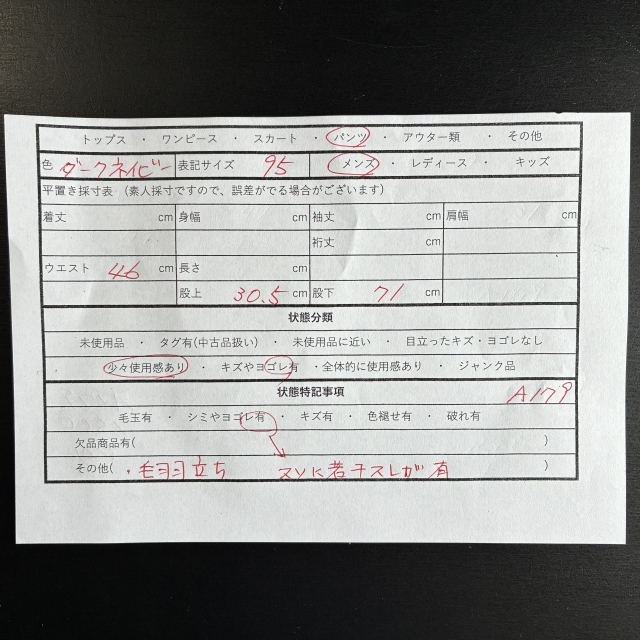 トップス ・ ワンピース ・ スカート ・ パンツ ・ アウター類 ・ その他
色 ダークネイビー 表記サイズ 95 メンズ ・ レディース ・ キッズ
平置き採寸表 (素人採寸ですので、誤差がでる場合がございます)
着丈 cm 身幅 cm 袖丈 cm 肩幅 cm
裄丈 cm
ウエスト 46 cm 長さ cm
股上 30.5 cm 股下 71 cm
状態分類
未使用品 ・ タグ有(中古品扱い) ・ 未使用品に近い ・ 目立ったキズ・ヨゴレなし
少々使用感あり ・ キズやヨゴレ有 ・全体的に使用感あり ・ ジャンク品
状態特記事項 A179
毛玉有 ・ シミやヨゴレ有 ・ キズ有 ・ 色褪せ有 ・ 破れ有
欠品商品有( )
その他( ・毛羽立ち スソに若干スレが有 )